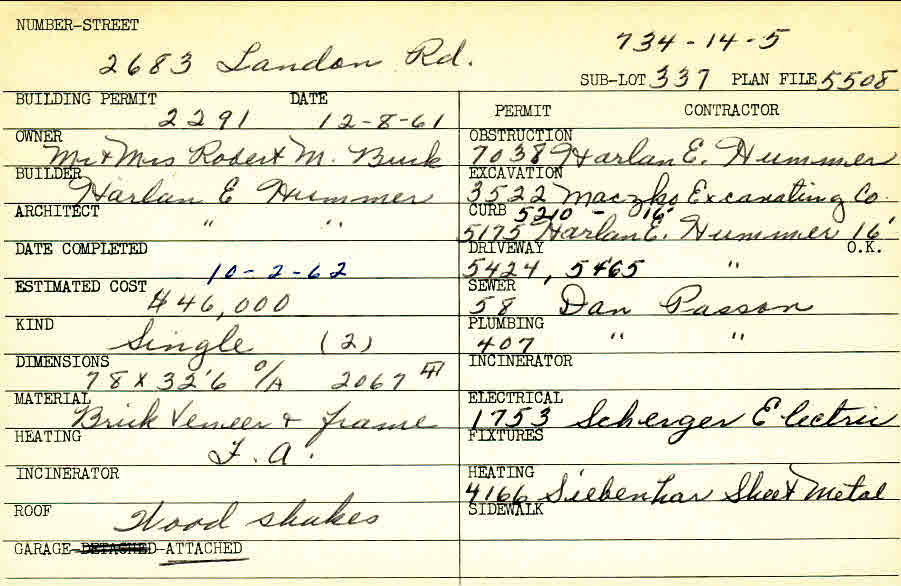 NUMBER-STREET
734-14-5
2683 Landon Rd.
SUB-LOT 337 PLAN FILE 5508
BUILDING PERMIT DATE
2291 12-8-61
OWNER
Mr & Mrs Robert M. Buck
BUILDER
Harlan E Hummer
ARCHITECT
" "
DATE COMPLETED
10-2-62
ESTIMATED COST
$46,000
KIND
Single (2)
DIMENSIONS
78 x 32'6 O/A 2067
MATERIAL
Brick Veneer & frame
HEATING
F.A.
INCINERATOR
ROOF
Wood shakes
GARAGE-DETACHED-ATTACHED
PERMIT CONTRACTOR
OBSTRUCTION
7038 Harlan E. Hummer
EXCAVATION
3522 Maczko Excavating Co.
CURB 5210 - 16'
5175 Harlan E. Hummer 16'
DRIVEWAY O.K.
5424, 5465 "
SEWER
58 Dan Passon
PLUMBING
407 " "
INCINERATOR
ELECTRICAL
1753 Scherger Electric
FIXTURES
HEATING
4166 Siebenhar Sheet Metal
SIDEWALK